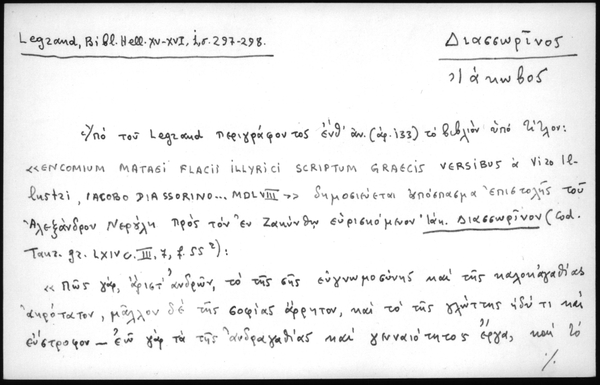 Legrand, Bibl. Hell. XV-XVI, ἱ, σ. 297-298.
Διασσωρῖνος
Ἰάκωβος
Ὑπό τοῦ Legrand περιγράφοντος ἔνθ' ἀν. (ἀρ. 133) τό βιβλίον ὑπό τίτλον:
«ENCOMIUM MATAEI FLACII ILLYRICI SCRIPTUM GRAECIS VERSIBUS à Viro Il-
lustri, IACOBO DIASSORINO... MDLVIII» δημοσιεύεται ἀπόσπασμα ἐπιστολῆς τοῦ
Ἀλεξάνδρου Νερούλη πρός τόν ἐν Ζακύνθῳ εὑρισκόμενον Ἰάκ. Διασσωρῖνον (Cod.
Taur. gr. LXIV C. III, 7, f. 55²):
«Πῶς γάρ, ἄριστ' ἀνδρῶν, τό τῆς σῆς εὐγνωμοσύνης καί τῆς καλοκἀγαθίας
ἀκρότατον, μᾶλλον δέ τῆς σοφίας ἄρρητον, καί τό τῆς γλώττης ἡδύ τι καί
εὔστροφον — ἐῶ γάρ τά τῆς ἀνδραγαθίας καί γενναιότητος ἔργα, καί τό
%.